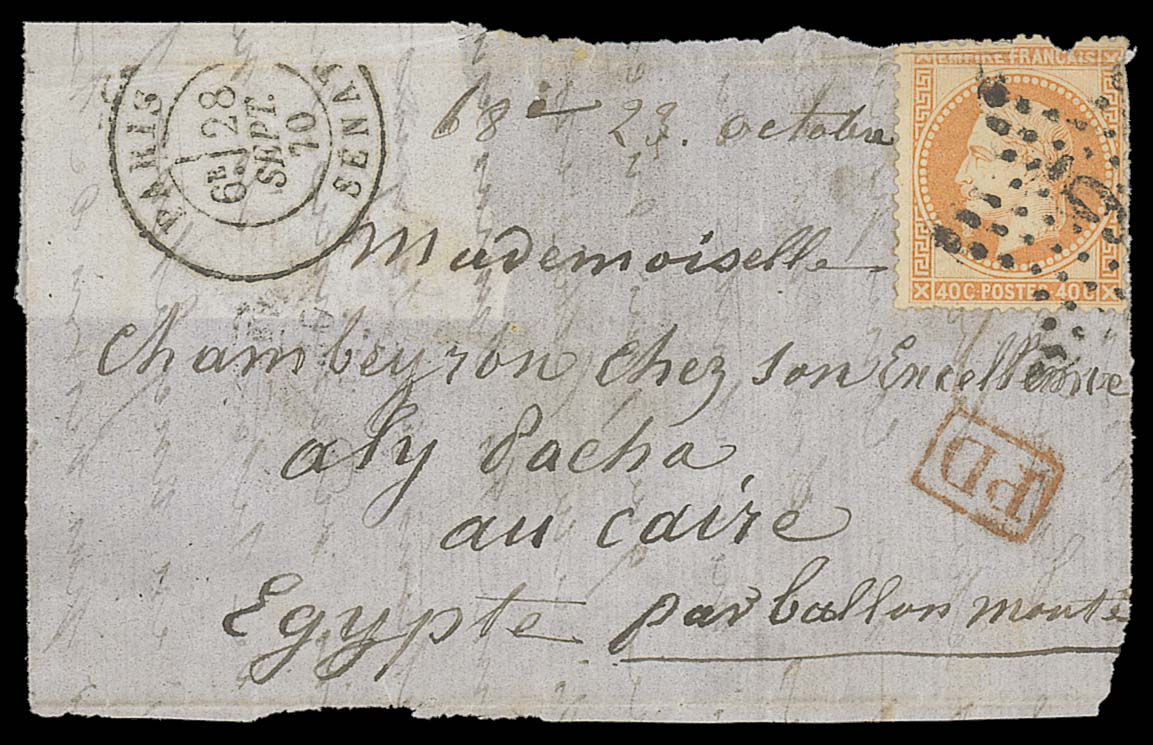 PARIS SENAT
6E 28
SEPT.
70
68e 23. octobre
EMPIRE FRANÇAIS
40C-POSTES-40C
Mademoiselle
Chambeyron chez son Excellence
aly Pacha
au caire
PD
Egypte par ballon monté